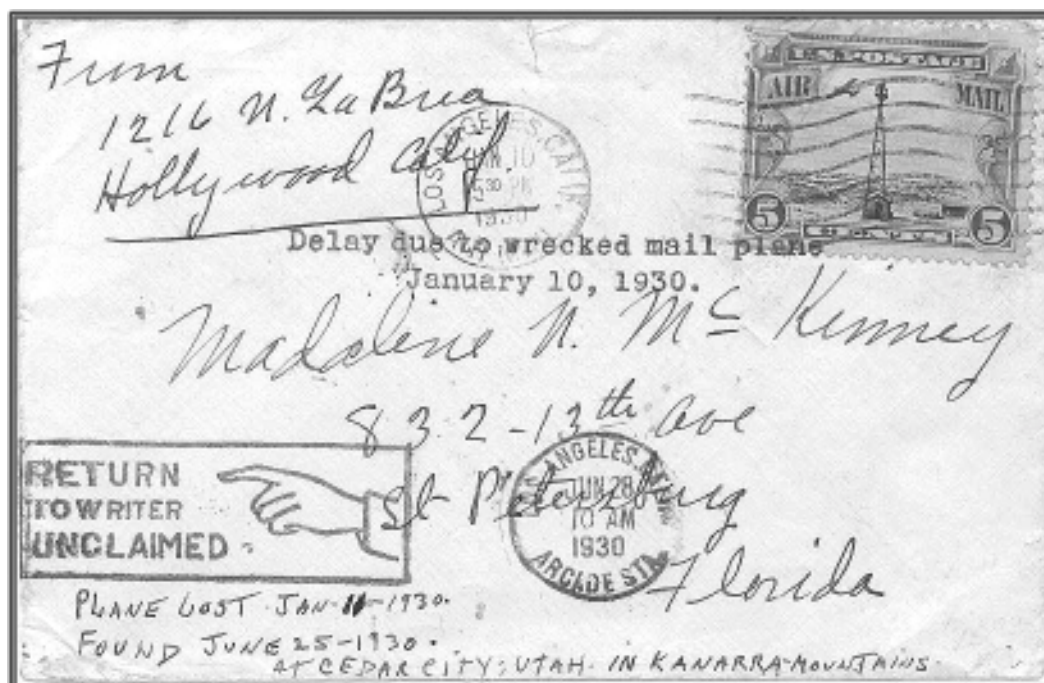 From
1216 N. La Brea
Hollywood Calif.
LOS ANGELES, CALIF.
JAN 10
5 30 PM
1930
U.S. POSTAGE
AIR MAIL
5 5
CENTS
Delay due to wrecked mail plane
January 10, 1930.
Madeline N. McKinney
832-13th ave
St Petersburg
Florida
RETURN
TO WRITER
UNCLAIMED.
ANGELES,
JUN 28
10 AM
1930
ARCADE STA.
PLANE LOST. JAN-11-1930.
FOUND JUNE 25-1930.
AT CEDAR CITY, UTAH. IN KANARRA MOUNTAINS.